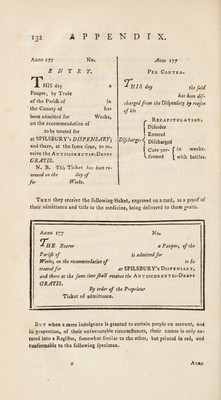 132 APPENDIX.
Anno 177 No.
ENTRY.
THIS day a
Pauper, by Trade
of the Parish of in
the County of has
been admitted for Weeks,
on the recommendation of
to be treated for
at SPILSBURY's DISPENSARY;
and there, at the same time, to re-
ceive the ANTISCORBUTIC-DROPS
GRATIS.
N. B. This Ticket has been re-
newed on the day of
for Weeks.
Anno 177
PER CONTRA.
THIS day the said
has been dis-
charged from the Dispensary by reason
of his
RECAPITULATION.
Discharge.
Disorder
Entered
Discharged
Cure per- in weeks.
formed with bottles.
THEN they receive the following ticket, engraved on a card, as a proof of
their admittance and title to the medicine, being delivered to them gratis.
Anno 177 No.
THE Bearer a Pauper, of the
Parish of is admitted for
Weeks, on the recommendation of to be
treated for at SPILSBURY's DISPENSARY,
and there at the same time shall receive the ANTISCORBUTIC-DROPS
GRATIS.
By order of the Proprietor
Ticket of admittance.
BUT when a mere indulgence is granted to certain people on account, and
in proportion, of their unfavourable circumstances, their names is only en-
tered into a Register, somewhat similar to the other, but printed in red, and
conformable to the following specimen.
Anno